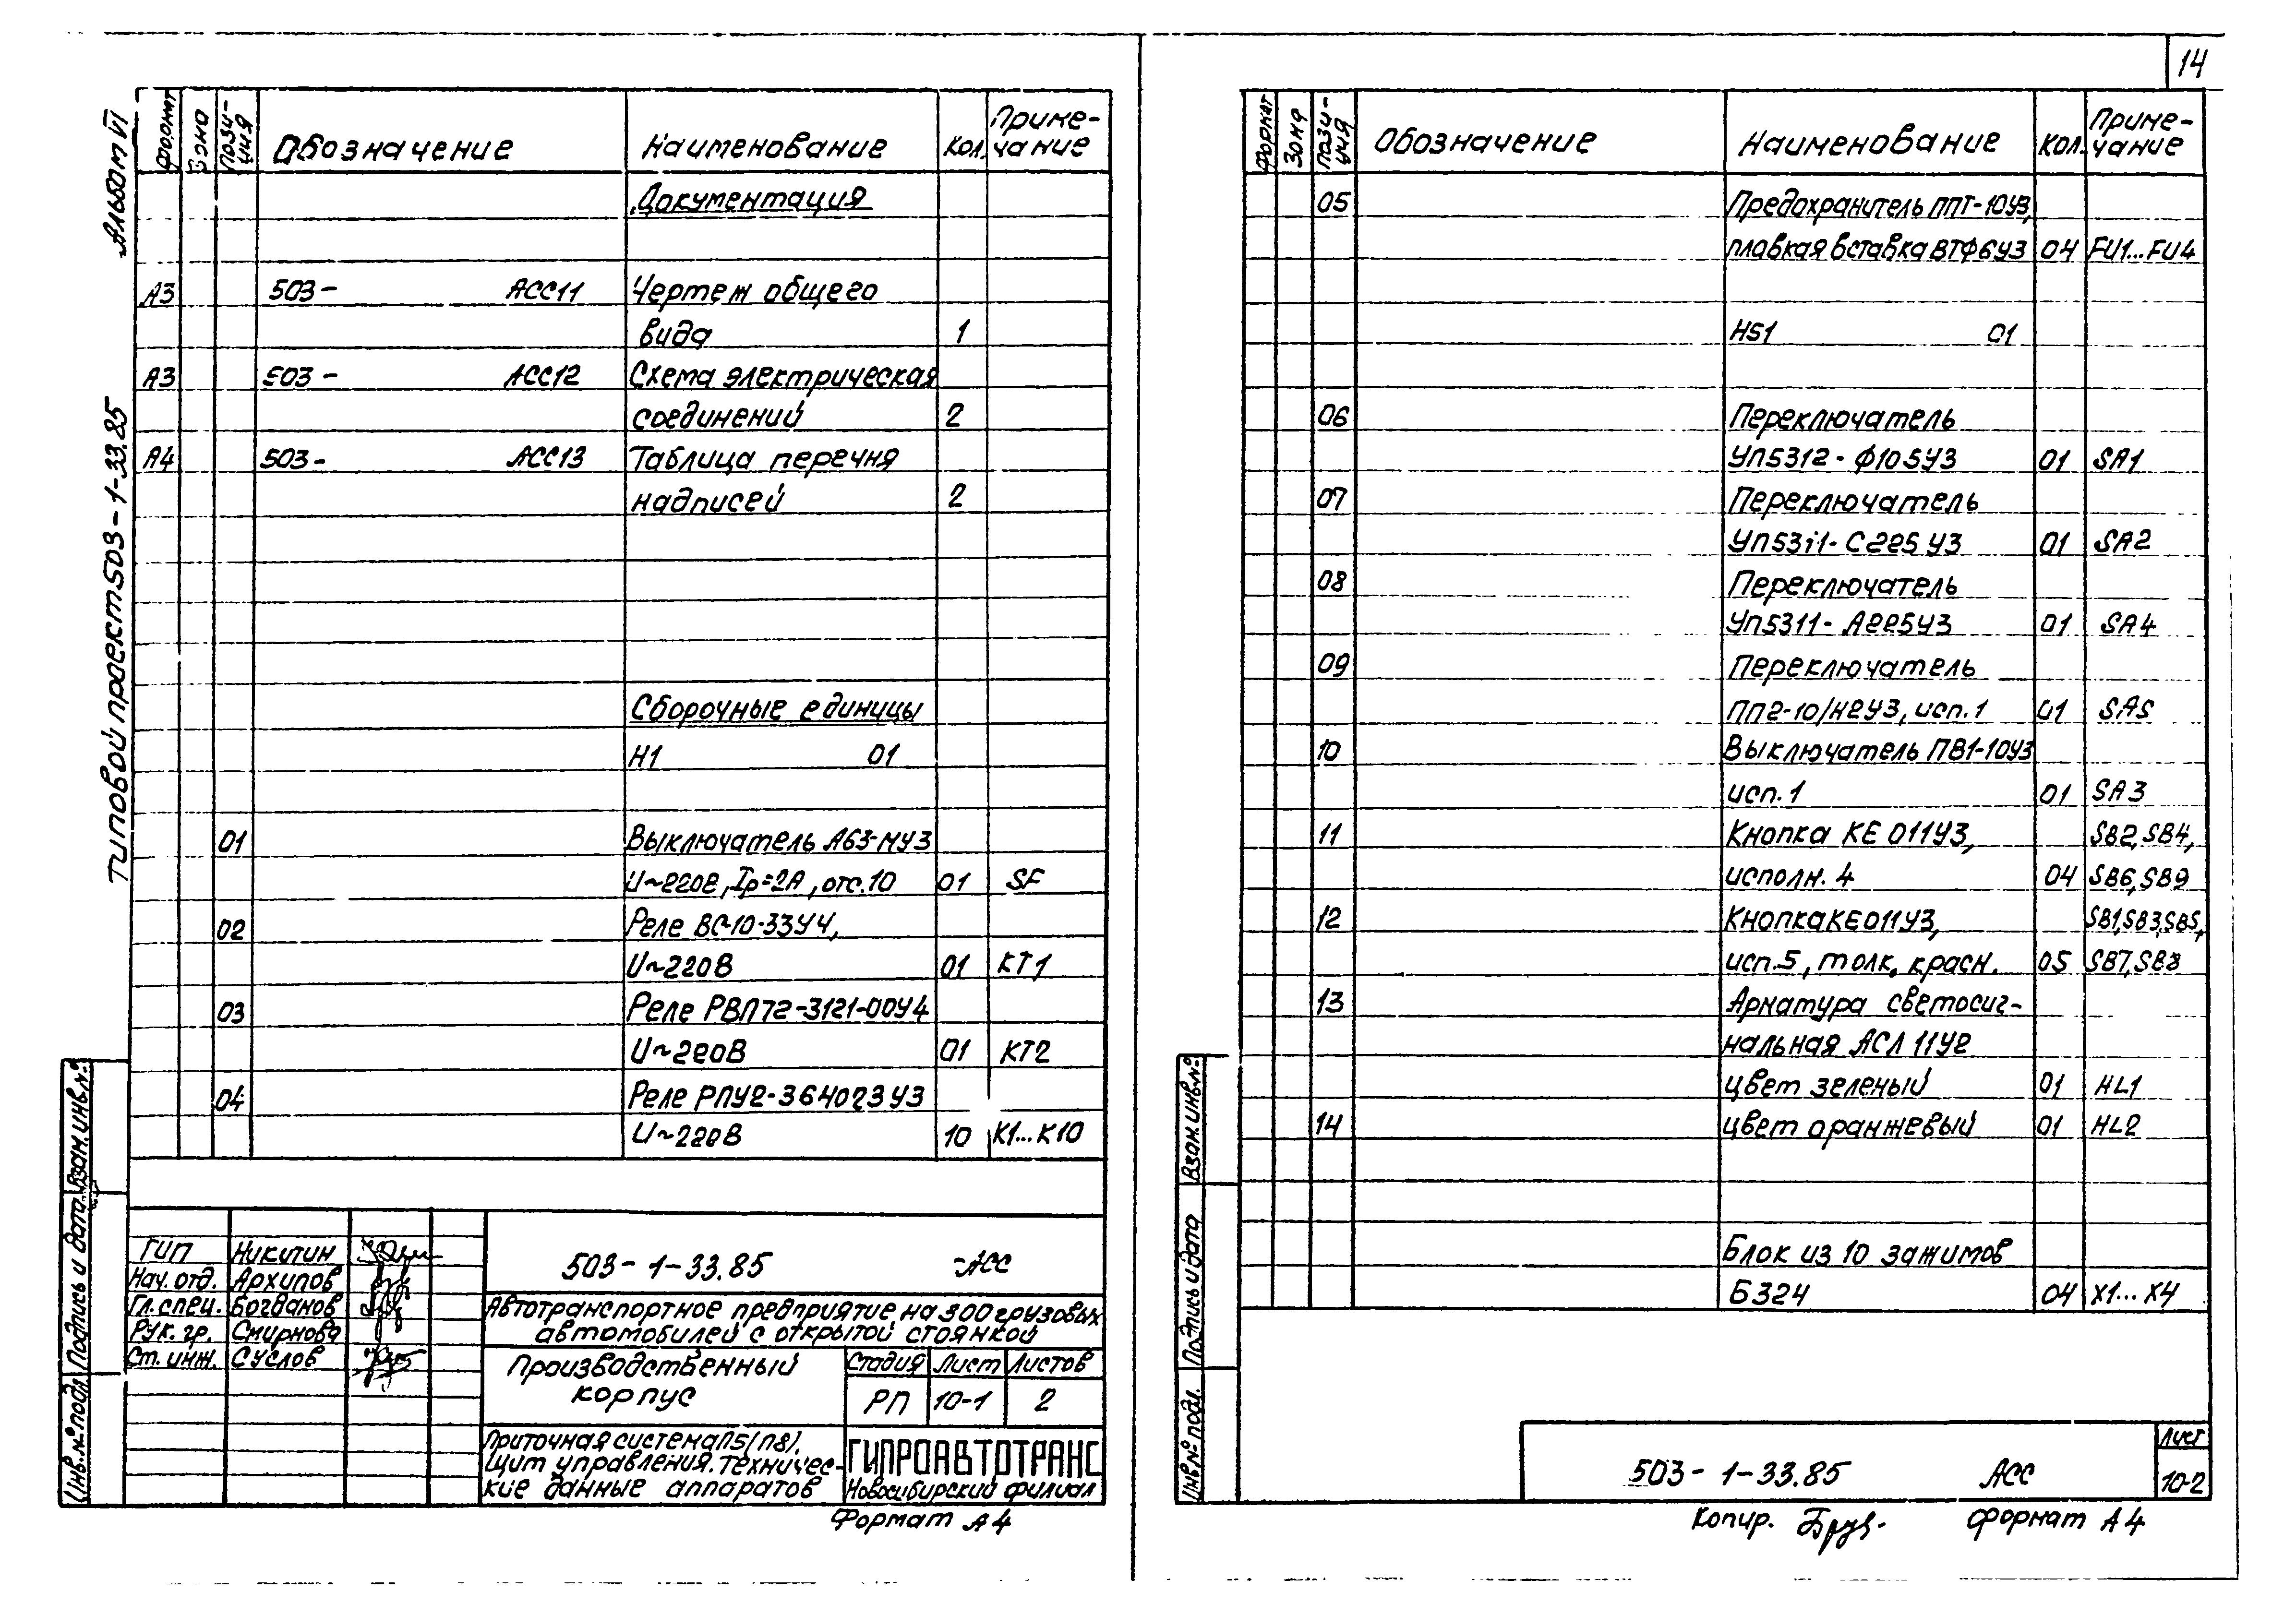 Альбом VI
Типовой проект 503-1-33.85
Формат Зона Пози-ция Обозначение Наименование Кол. Приме-чание
Документация
А3 503- АСС11 Чертеж общего
вида 1
А3 503- АСС12 Схема электрическая
соединений 2
А4 503- АСС13 Таблица перечня
надписей 2
Сборочные единицы
Н1 01
01 Выключатель А63-МУ3
U~220В, Iр=2А, отс.10 01 SF
02 Реле ВС-10-33У4,
U~220В 01 КТ1
03 Реле РВП72-3121-00У4
U~220В 01 КТ2
04 Реле РПУ2-364023У3
U~220В 10 К1...К10
Взам. инв.№
Подпись и дата
Инв.№ подл.
ГИП Никитин
Нач. отд. Архипов
Гл. спец. Богданов
Рук. гр. Смирнова
Ст. инж. Суслов
503-1-33.85 -АСС
Автотранспортное предприятие на 300 грузовых
автомобилей с открытой стоянкой
Производственный
корпус
Стадия Лист Листов
РП 10-1 2
Приточная система П5(П8).
Щит управления. Техничес-
кие данные аппаратов
ГИПРОАВТОТРАНС
Новосибирский филиал
Формат А4
14
Формат Зона Пози-ция Обозначение Наименование Кол. Приме-чание
05 Предохранитель ППТ-10У3,
плавкая вставка ВТФ6У3 04 FU1...FU4
HS1 01
06 Переключатель
УП5312-Ф105У3 01 SA1
07 Переключатель
УП5311-С225У3 01 SA2
08 Переключатель
УП5311-А225У3 01 SA4
09 Переключатель
ПП2-10/Н2У3, исп.1 01 SA5
10 Выключатель ПВ1-10У3
исп.1 01 SA3
11 Кнопка КЕ 011У3, SB2, SB4,
исполн. 4 04 SB6, SB9
12 Кнопка КЕ011У3, SB1, SB3, SB5,
исп.5, толк. красн. 05 SB7, SB8
13 Арматура светосиг-
нальная АСЛ 11У2
цвет зеленый 01 HL1
14 цвет оранжевый 01 HL2
Блок из 10 зажимов
Б324 04 Х1...Х4
Взам. инв.№
Подпись и дата
Инв.№ подл.
503-1-33.85 АСС
Лист
10-2
Копир. Формат А4